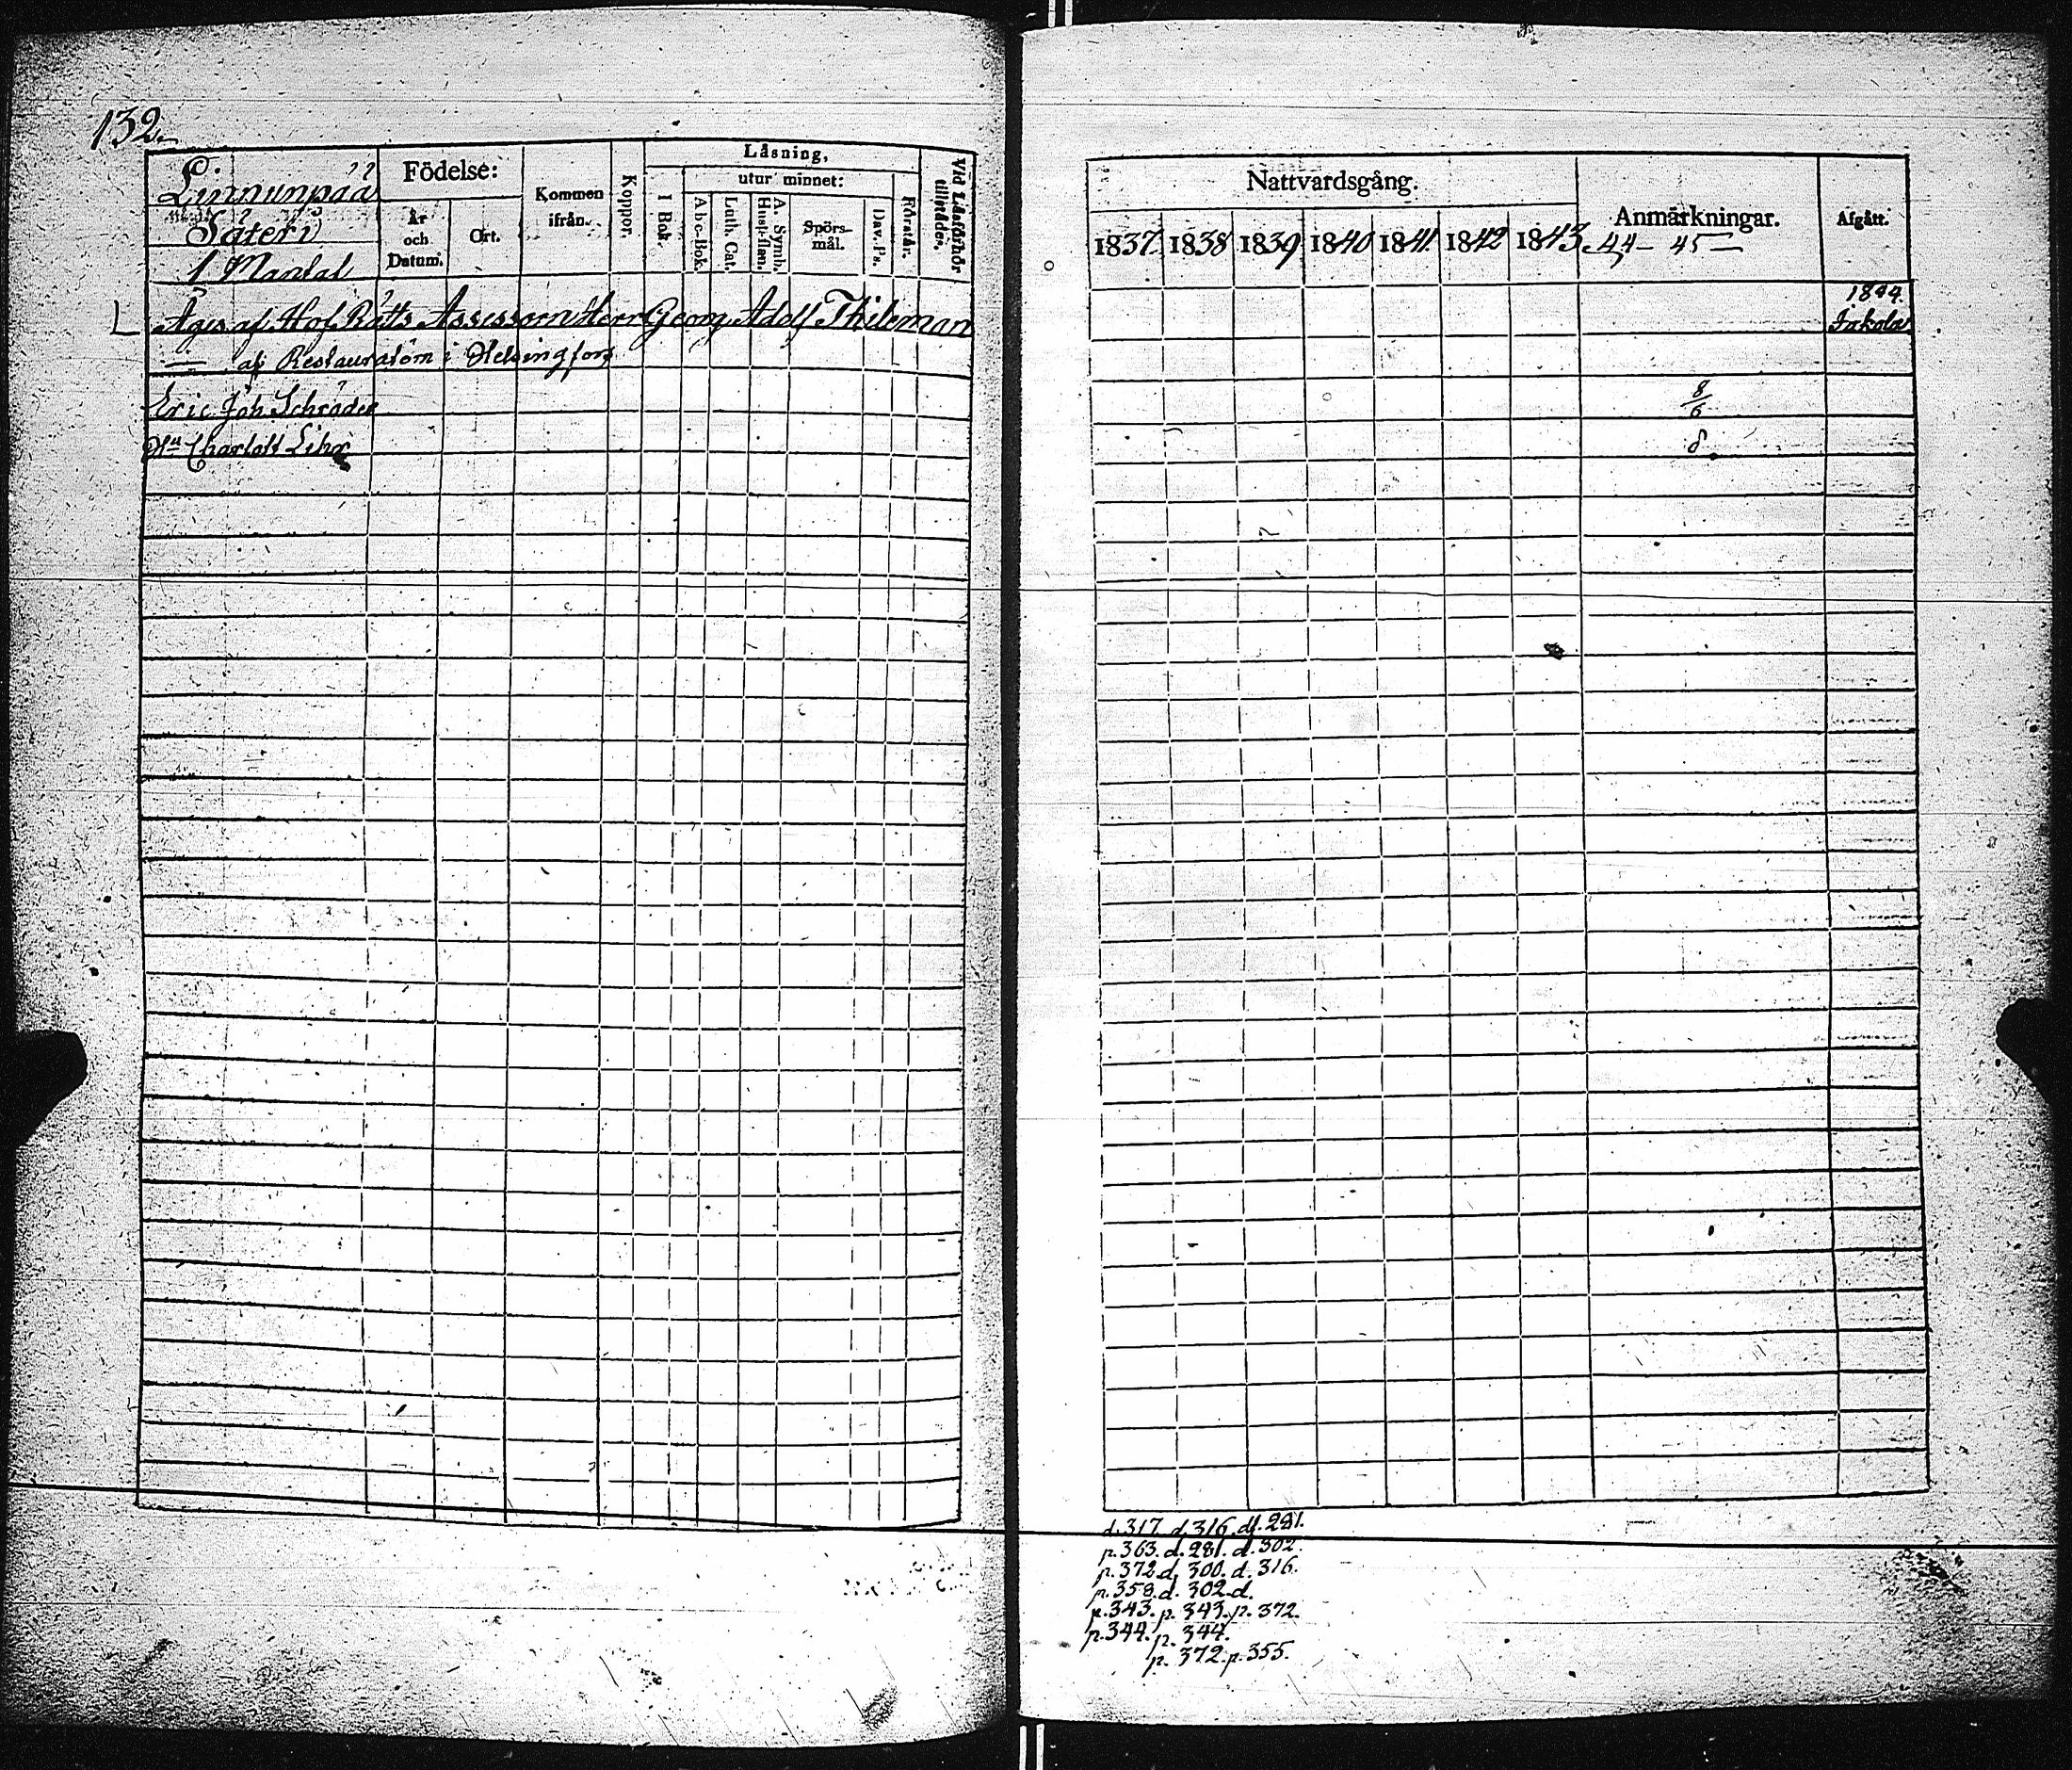 132.
Linnunpää
Säteri
1 Mantal
Födelse:
År och Datum.
Ort.
Kommen ifrån.
Koppor.
Läsning,
I Bok.
utur minnet:
Abc-Bok.
Luth. Cat.
A. Symb. Hust-flan.
Spörsmål.
Dav. Ps.
Förstår.
Vid Läsförhör tillstädes.
Äges af Hof Rätts Assessorn Herr Georg Adolf Thileman
— af Restauratörn i Helsingfors
Eric Joh Schröder
Hu Charlott Lihr
Nattvardsgång.
1837. 1838 1839 1840 1841 1842 1843. 44- 45-
Anmärkningar.
Afgått.
1844.
Inkola
8/6
8
d. 317. d. 316. df. 281.
p. 363. d. 281. d. 302.
p. 372 d. 300. d. 316.
p. 358. d. 302. d.
p. 343. p. 343. p. 372.
p. 344. p. 344.
p. 372. p. 355.